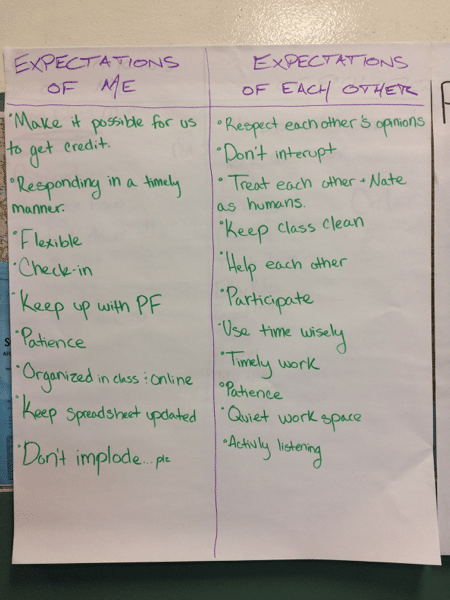 EXPECTATIONS
OF ME
• Make it possible for us
to get credit.
• Responding in a timely
manner.
• Flexible
• Check-in
• Keep up with PF
• Patience
• Organized in class : online
• Keep spreadsheet updated
• Don't implode... plz
EXPECTATIONS
OF EACH OTHER
• Respect each other's opinions
• Don't interupt
• Treat each other + Nate
as humans.
• Keep class clean
• Help each other
• Participate
• Use time wisely
• Timely work
• Patience
• Quiet work space
• Activly listening